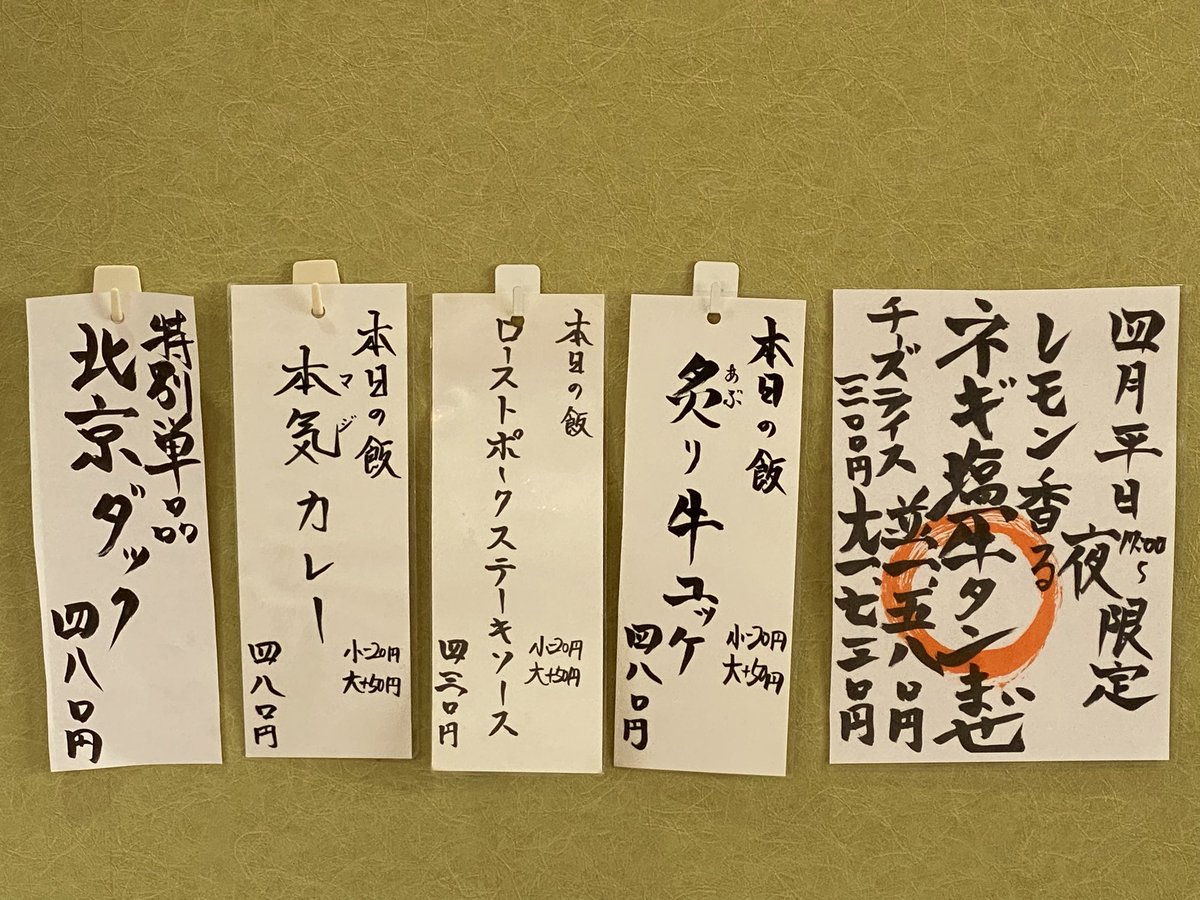 四月平日夜限定
17:00〜
レモン香る
ネギ塩牛タンまぜ
チーズライス 並一、五八〇円
三〇〇円 大一、七三〇円
本日の飯
炙り牛ユッケ
あぶ
小-20円
大+50円
四八〇円
本日の飯
ローストポークステーキソース
小-20円
大+50円
四三〇円
本日の飯
本気カレー
マジ
小-20円
大+50円
四八〇円
特別単品
北京ダック
四八〇円